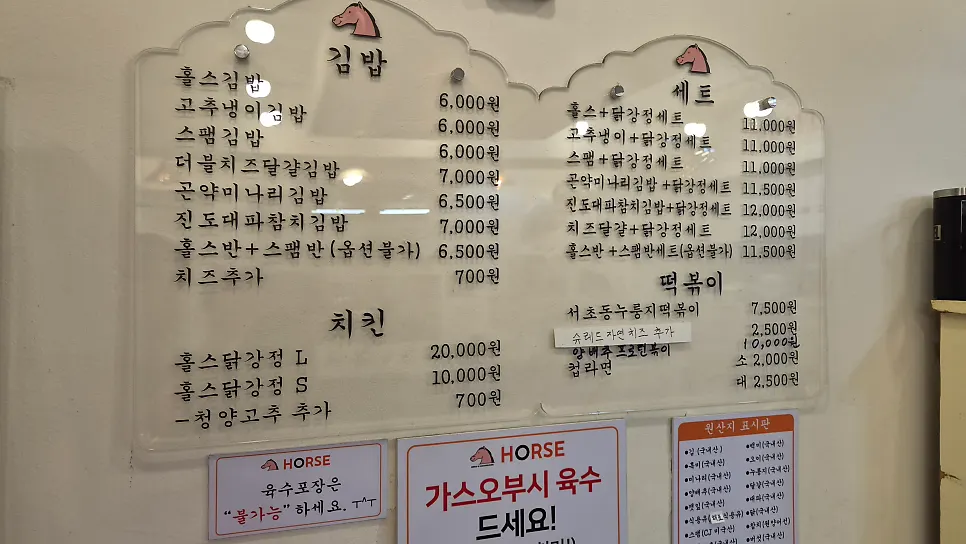 김밥
홀스김밥 6,000원
고추냉이김밥 6,000원
스팸김밥 6,000원
더블치즈달걀김밥 7,000원
곤약미나리김밥 6,500원
진도대파참치김밥 7,000원
홀스반+스팸반(옵션불가) 6,500원
치즈추가 700원
치킨
홀스닭강정 L 20,000원
홀스닭강정 S 10,000원
-청양고추 추가 700원
세트
홀스+닭강정세트 11,000원
고추냉이+닭강정세트 11,000원
스팸+닭강정세트 11,000원
곤약미나리김밥+닭강정세트 11,500원
진도대파참치김밥+닭강정세트 12,000원
치즈달걀+닭강정세트 12,000원
홀스반+스팸반세트(옵션불가) 11,500원
떡볶이
서초동누룽지떡볶이 7,500원
슈레드자연치즈 추가 2,500원
양배추 프로틴볶이 10,000원
컵라면 소 2,000원
대 2,500원
HORSE
육수포장은
"불가능"하세요. ㅜㅅㅜ
HORSE
가스오부시 육수
드세요!
원산지 표시판
●김(국내산)
●흑미(국내산)
●미나리(국내산)
●양배추(국내산)
●깻잎(국내산)
●스팸(CJ 미국산)
●백미(국내산)
●오이(국내산)
●누룽지(국내산)
●달걀(국내산)
●대파(국내산)
●닭(국내산)
●참치(원양어선)
●버섯(국내산)